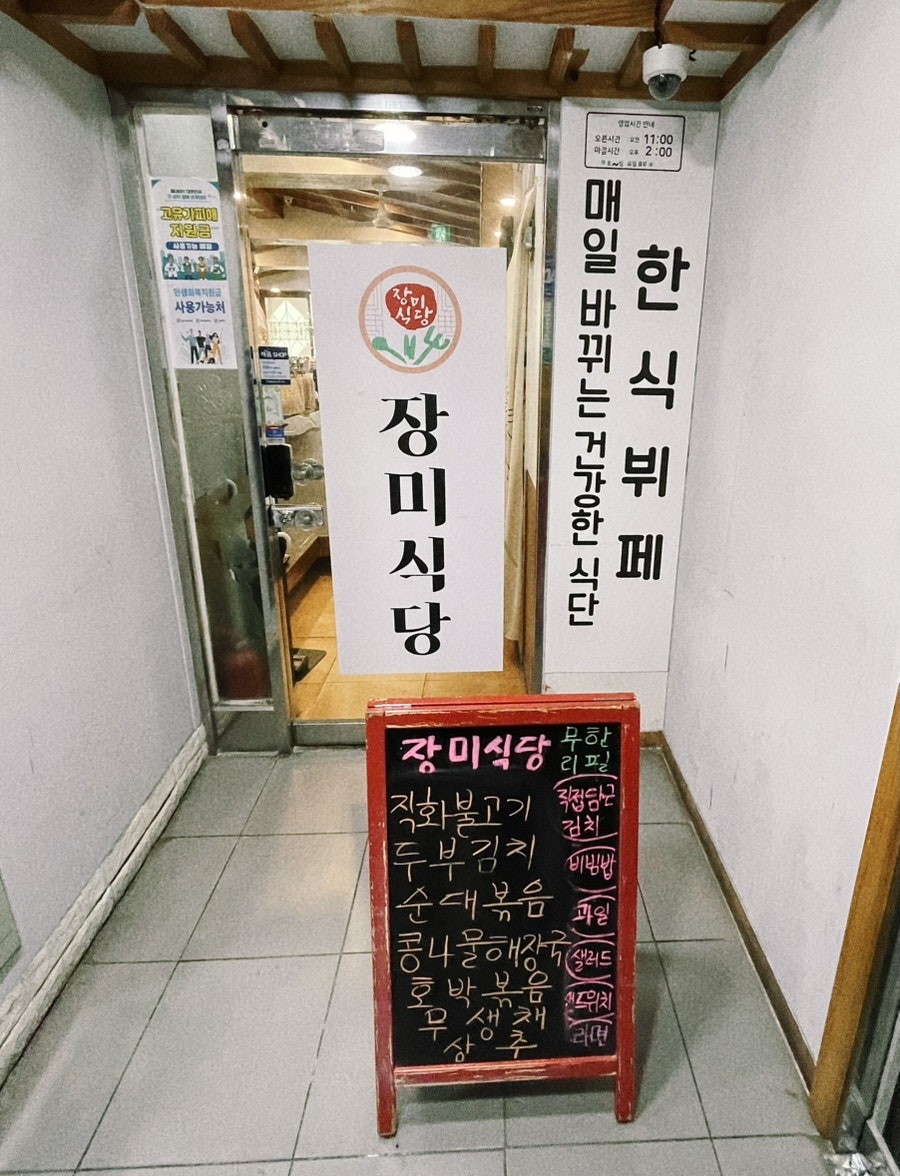 고유가피해
지원금
사용가능 매장
민생회복지원금
사용가능처
장미
식당
장미식당
영업시간 안내
오픈시간 오전 11:00
마감시간 오후 2:00
한식뷔페
매일 바뀌는 건강한 식단
장미식당
직화불고기
두부김치
순대볶음
콩나물해장국
호박볶음
무생채
상추
무한
리필
직접담근
김치
비빔밥
과일
샐러드
샌드위치
라면